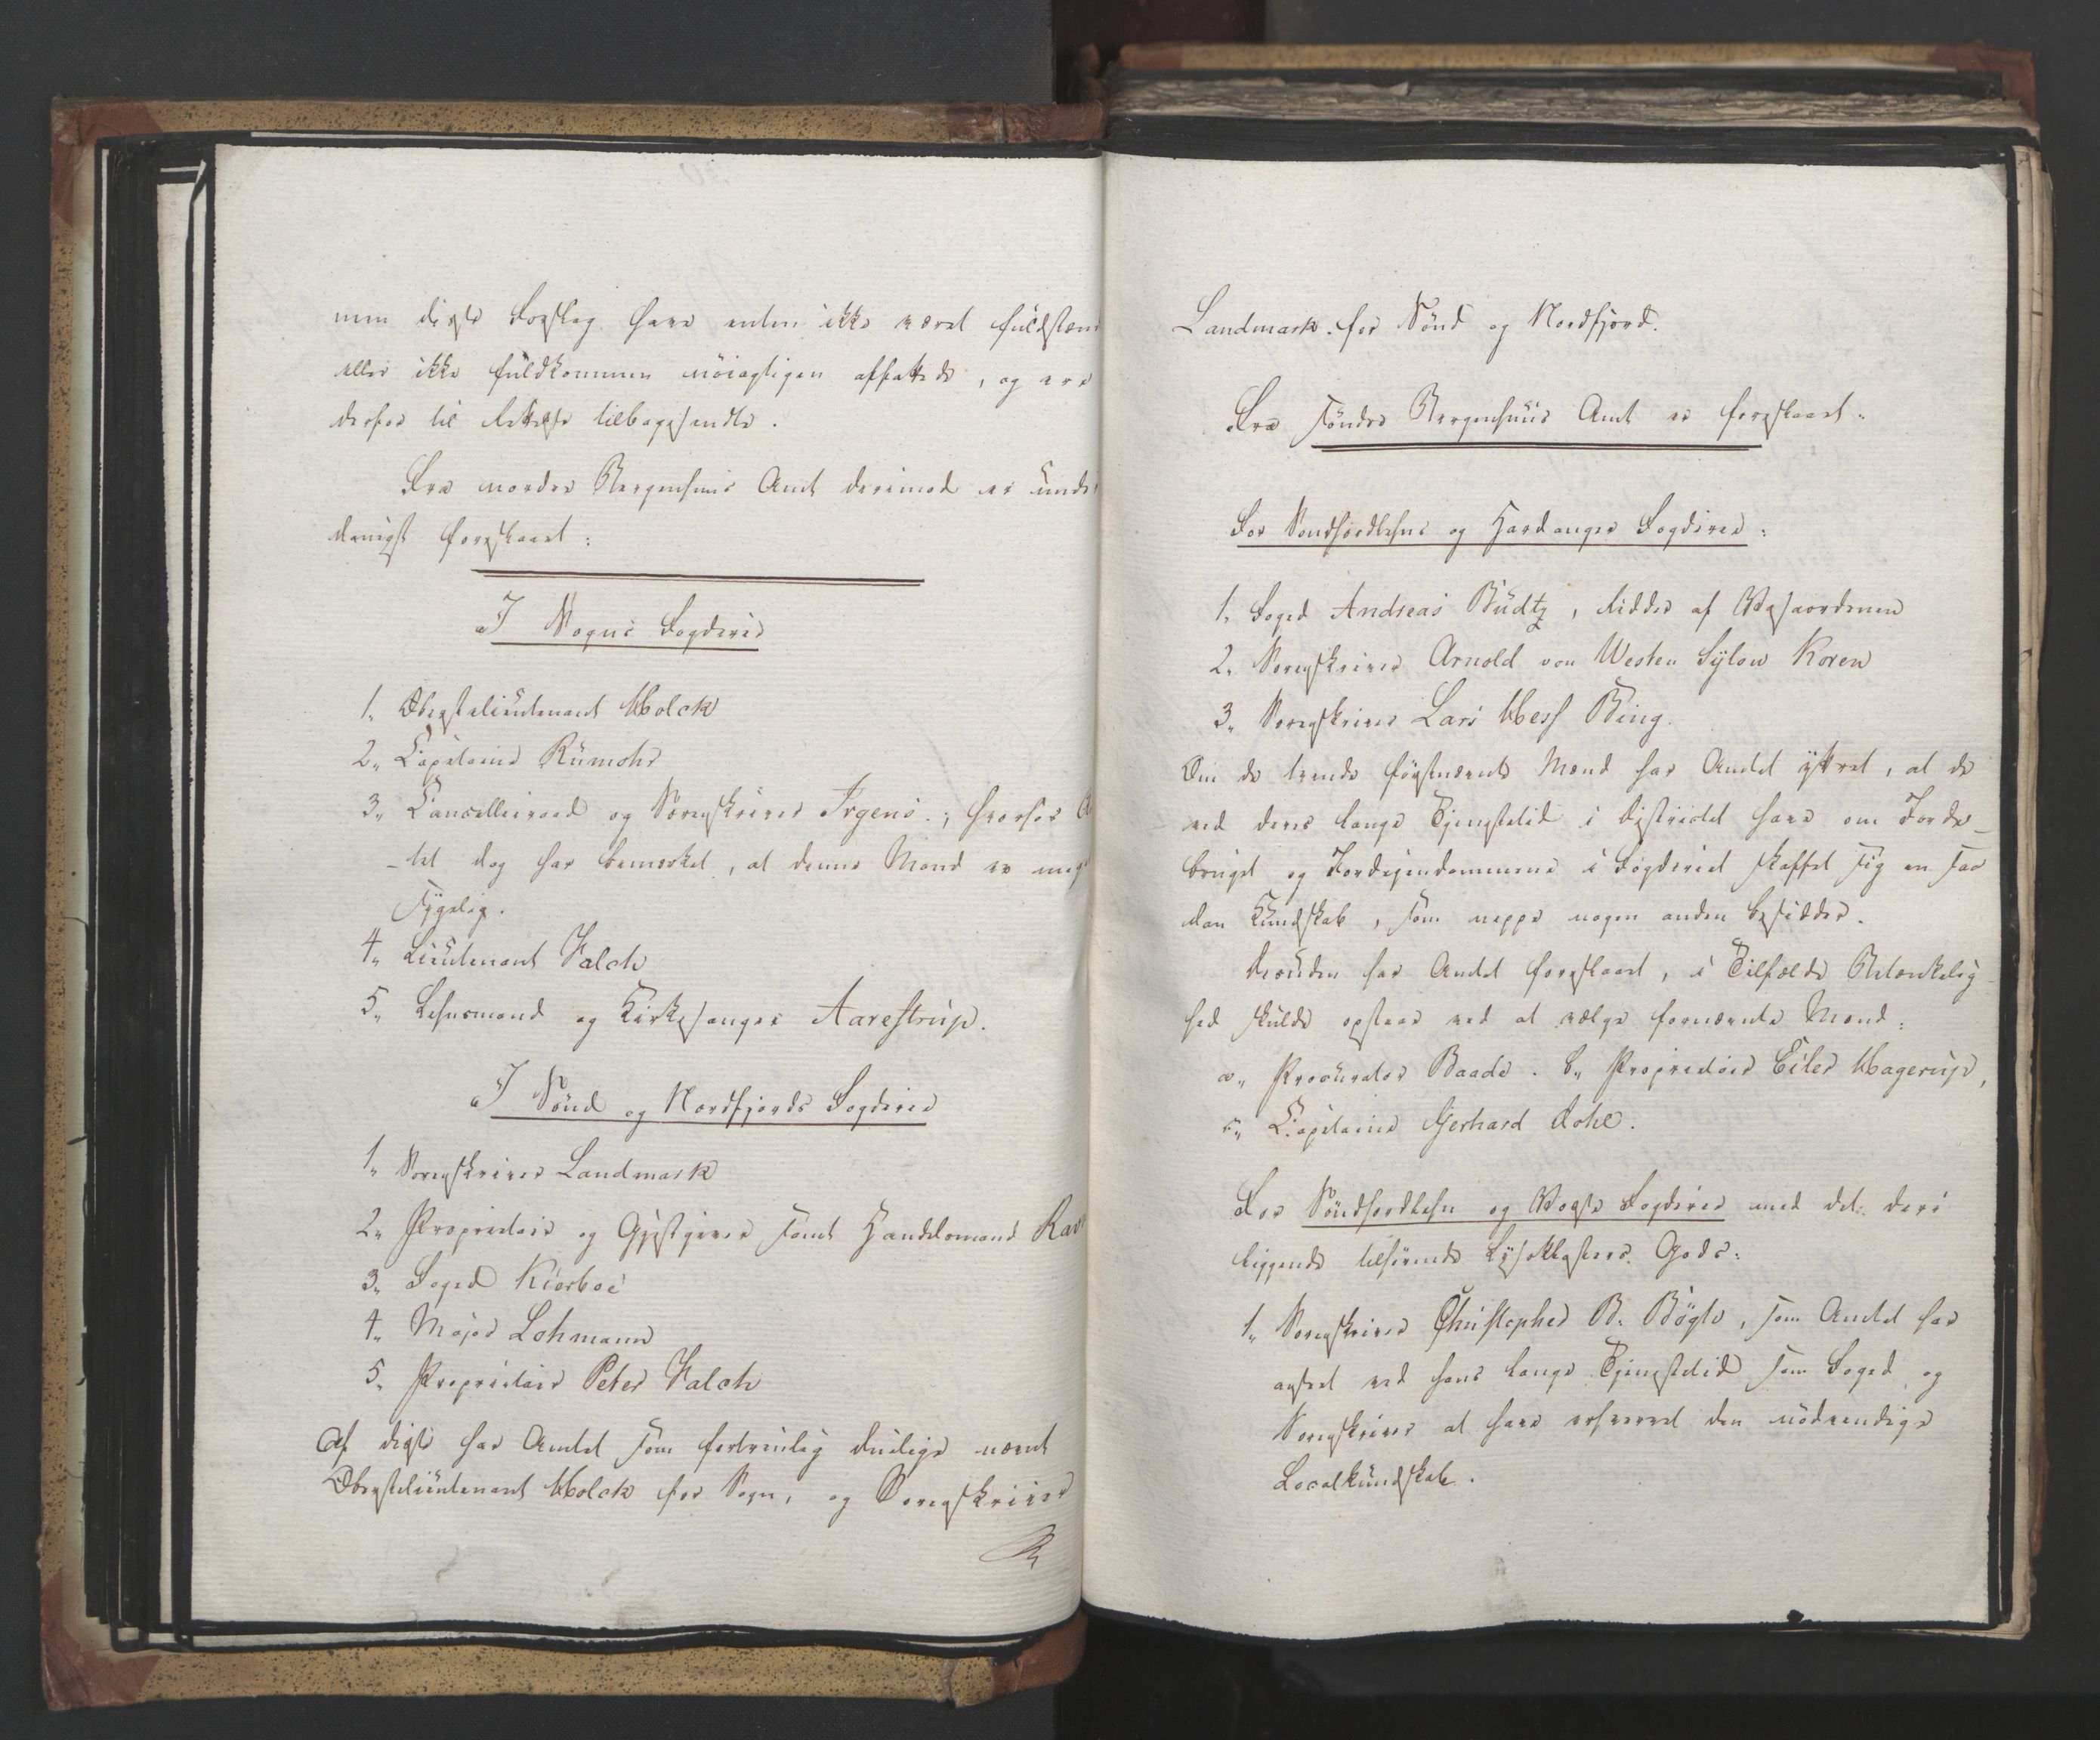 men disse Forslag have enten ikke været fuldstæn
eller ikke fuldkommen nöiagtigen affattede, og ere
derfor til Rettelse tilbagesendte.
Fra nordre Bergenhuus Amt derimod er under
danigst foreslaaet:
I Sogns Fogderie
1, Oberstelieutenant Holck
2,, Capitaine Rumohr
3,, Cancelliraad og Sorenskriver Irgens.; hvorfor A
-tet dog har bemærket, at denne Mand er meget
sygelig.
4,, Lieutenant Falch
5,, Lehnsmand og Kirkesanger Aarestrup.
I Sönd og Nordfjords Fogderie
1,, Sorenskriver Landmark
2,, Proprietair og Gjestgiver samt Handelsmand Rav
3,, Foged Kiörboe
4,, Major Lohmann
5,, Proprietair Peter Falch
Af disse har Amtet som fortrinlig duelige nævnt
Oberstelieutenant Holck for Sogn, og Sorenskriver
Landmark for Sönd og Nordfjord.
Fra söndre Bergenhuus Amt er foreslaaet:
For Söndhordlehns og Hardanger Fogderie:
1, Foged Andreas Budtz, Ridder af Wasaordenen
2, Sorenskriver Arnold von Westen Sylow Koren
3,, Sorenskriver Lars Hess Bing.
Om de tvende förstnævnte Mænd har Amtet yttret, at de
ved deres lange Tjenestetid i Districtet have om Jorde-
bruget og Jordejendommene i Fogderiet skaffet sig en saa
dan Kundskab, som neppe nogen anden besidder.
Desuden har Amtet foreslaaet, i Tilfælde Betænkelig
hed skulde opstaae ved at vælge fornævnte Mænd:
a,, Procurator Baade. b,, Proprietair Eiler Hagerup,
c,, Capitaine Gerhard Rohl.
For Nordhordlehn og Wosse Fogderie med det deri
liggende tilhörende Lyseklosters Gods:
1,, Sorenskriver Christopher B. Bögh, som Amtet har
anseet ved hans lange Tjenestetid som Foged og
Sorenskriver at have erhvervet den nödvendige
Localkundskab.